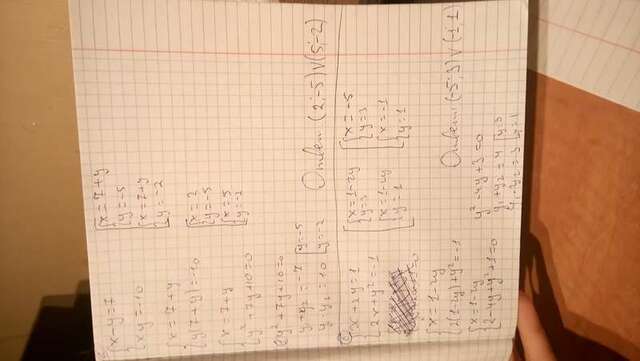 x - y = 7
xy = -10
x = 7 + y
y(7 + y) = -10
x = 7 + y
y² + 7y + 10 = 0
y² + 7y + 10 = 0
y₁ + y₂ = -7
y₁ · y₂ = 10
y = -5
y = -2
x = 7 + y
y = -5
x = 7 + y
y = -2
x = 2
y = -5
x = 5
y = -2
Ответ: (2; -5) V (5; -2)
x + 2y = 1
2x + y² = -1
x = 1 - 2y
2(1 - 2y) + y² = -1
x = 1 - 2y
2 - 4y + y² + 1 = 0
x = 1 - 2y
y = 3
x = 1 - 2y
y = 1
x = -5
y = 3
x = -1
y = 1
y² - 4y + 3 = 0
y₁ + y₂ = 4
y₁ · y₂ = 3
y = 3
y = 1
Ответ: (-5; 3) V (-1; 1)